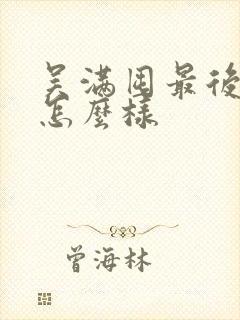 吴满囤最後
怎麼樣
曾海林